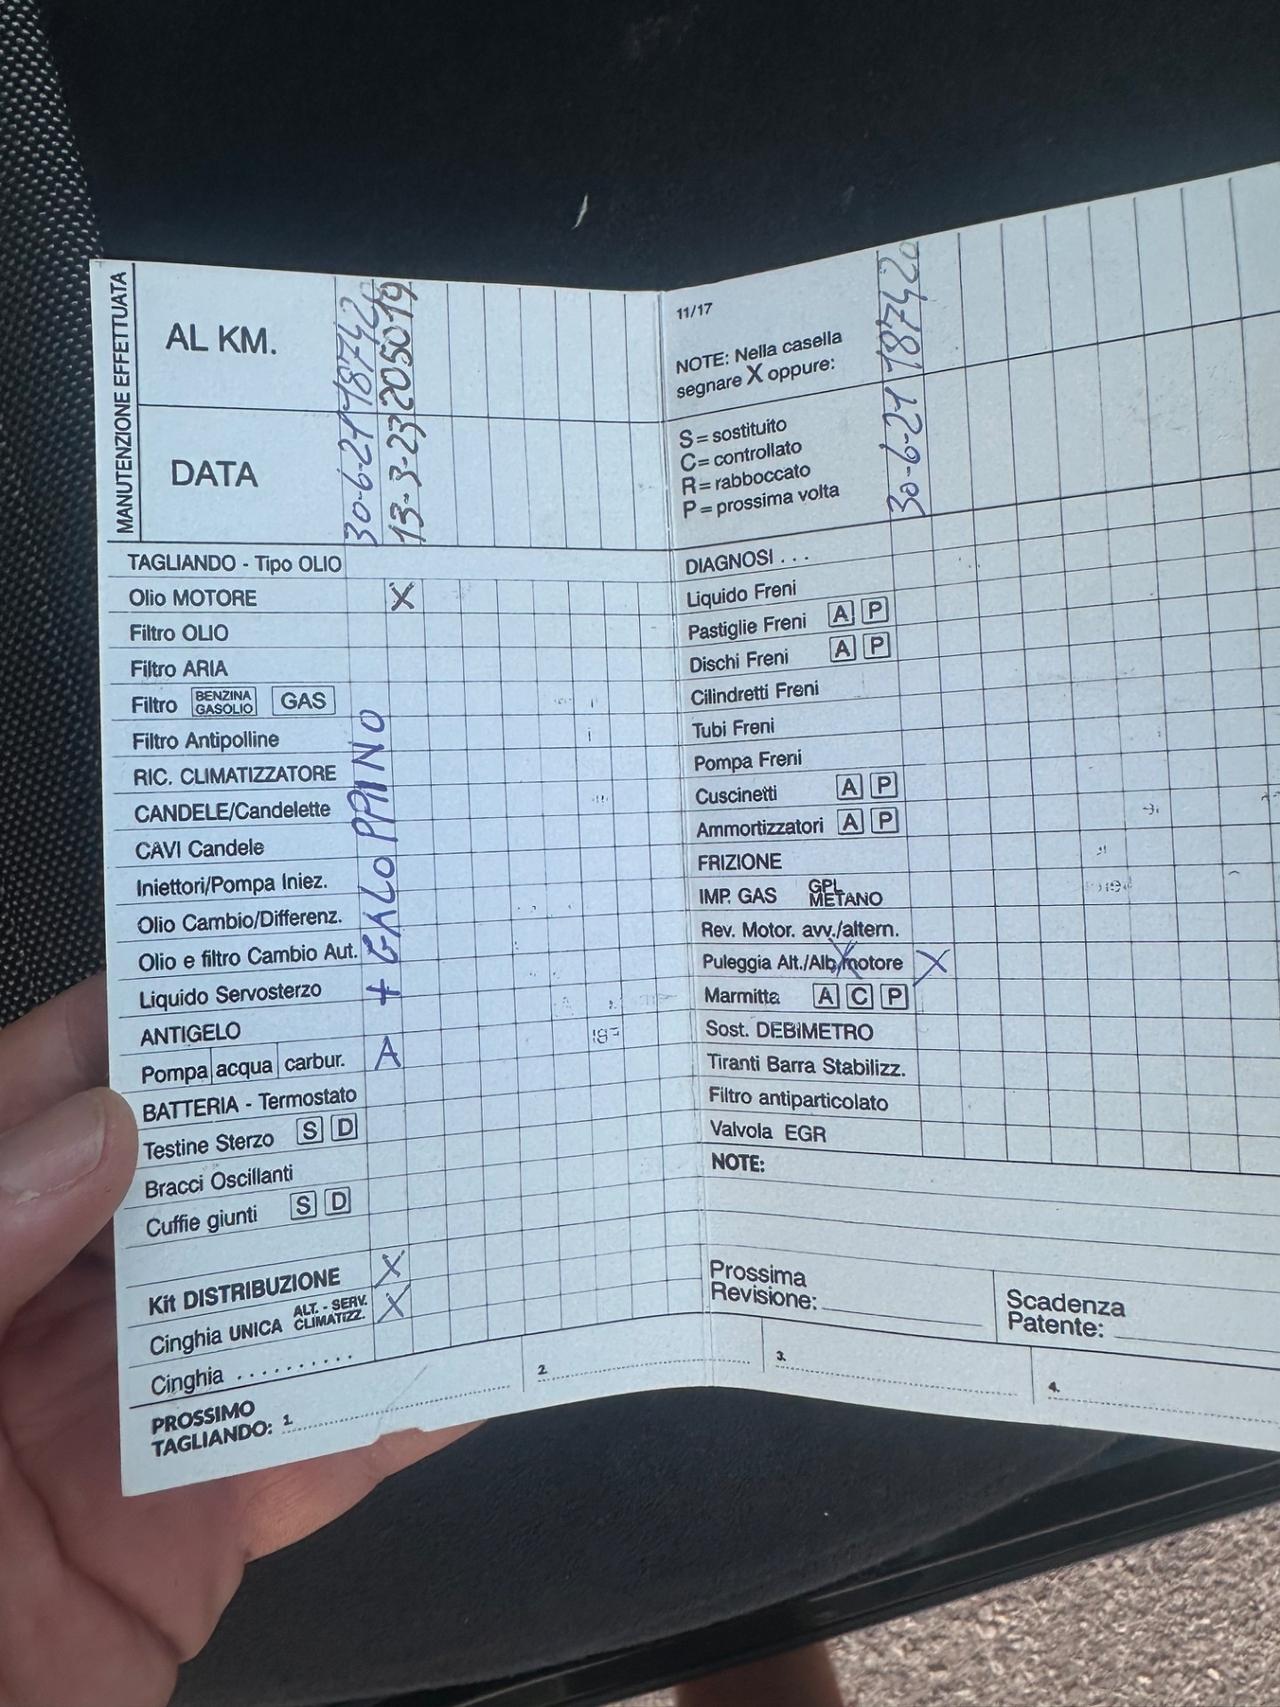 MANUTENZIONE EFFETTUATA
AL KM. 187420 205019
DATA 30-6-21 13-3-23
TAGLIANDO - Tipo OLIO
Olio MOTORE X
Filtro OLIO
Filtro ARIA
Filtro BENZINA GASOLIO GAS
Filtro Antipolline
RIC. CLIMATIZZATORE
CANDELE/Candelette
CAVI Candele
Iniettori/Pompa Iniez.
Olio Cambio/Differenz.
Olio e filtro Cambio Aut.
Liquido Servosterzo
+ GALOPPINO
ANTIGELO
Pompa acqua carbur. A
BATTERIA - Termostato
Testine Sterzo S D
Bracci Oscillanti
Cuffie giunti S D
Kit DISTRIBUZIONE X
Cinghia UNICA ALT. - SERV. CLIMATIZZ. X
Cinghia ..........
PROSSIMO
TAGLIANDO: 1.
2.
11/17
NOTE: Nella casella
segnare X oppure:
187420
S = sostituito
C = controllato
R = rabboccato
P = prossima volta
30-6-21
DIAGNOSI . . .
Liquido Freni
Pastiglie Freni A P
Dischi Freni A P
Cilindretti Freni
Tubi Freni
Pompa Freni
Cuscinetti A P
Ammortizzatori A P
FRIZIONE
IMP. GAS GPL METANO
Rev. Motor. avv./altern.
Puleggia Alt./Alb/motore X
Marmitta A C P
Sost. DEBIMETRO
Tiranti Barra Stabilizz.
Filtro antiparticolato
Valvola EGR
NOTE:
Prossima
Revisione:
Scadenza
Patente:
3.
4.